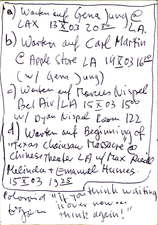 a) Warten auf Gena Jung @
LAX 13 X 03 20³⁰ LA.
b) Warten auf Carl Martin
@ Apple Store LA 14 X 03 16⁰⁰
(w/ Gena Jung)
c) Warten auf Marcus Nispel
Bel Air/LA 15 X 03 15⁰⁰
w/ Dyan Nispel Room 122
d) Warten auf Beginning of
"Texas Chainsaw Massacre" @
Chinese Theater LA w/ Max
Melinda + Emanuel Hurwes
15 X 03 19
Polaroid "if you think waiting
is over now...
think again!"